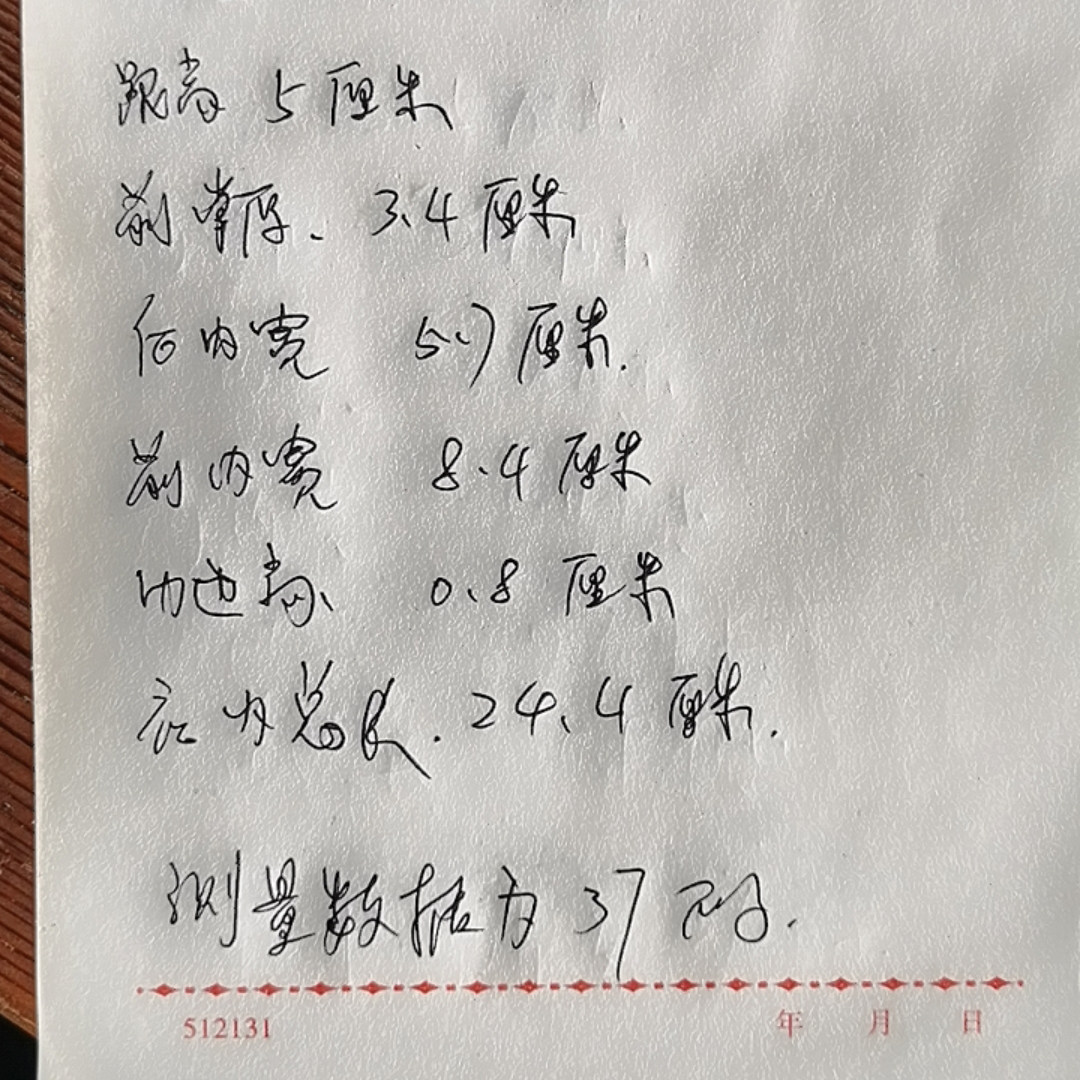 跟高 5厘米
前掌厚. 3.4厘米
后内宽 5.7厘米.
前内宽 8.4厘米
内边高 0.8厘米
衣内总长. 24.4厘米.
测量数据为37码.
512131 年 月 日